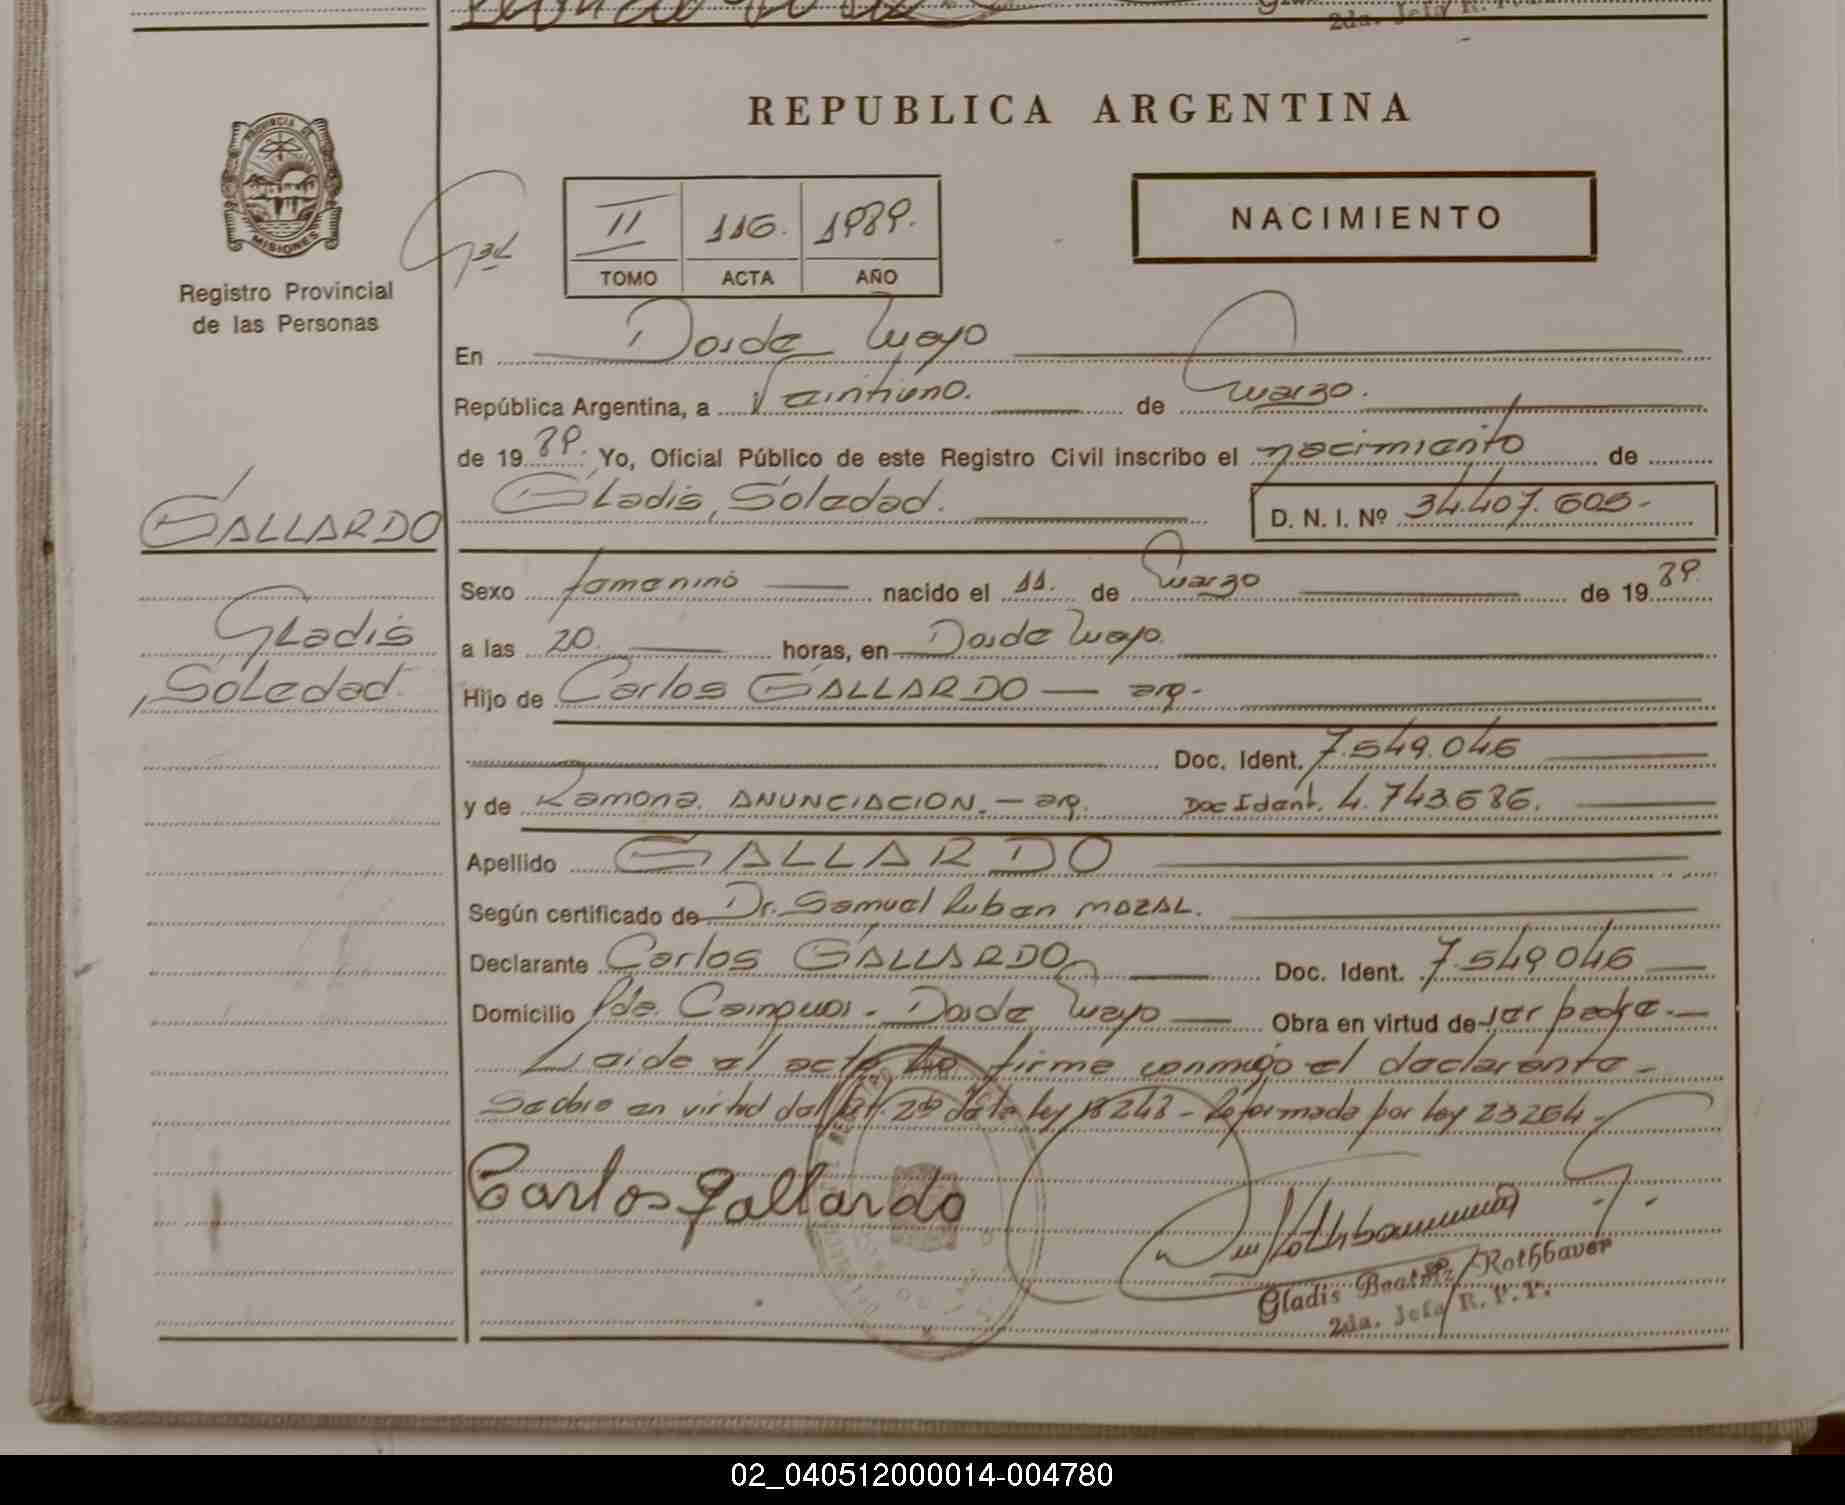 2da. Jefa R.
REPUBLICA ARGENTINA
PROVINCIA DE
MISIONES
Registro Provincial
de las Personas
II 116. 1989.
TOMO ACTA AÑO
NACIMIENTO
En Dos de Mayo
República Argentina, a Veintiuno. de Marzo.
de 19 89. Yo, Oficial Público de este Registro Civil inscribo el nacimiento de
GALLARDO
Gladis, Soledad. D. N. I. Nº 34.407.605-
Sexo femenino nacido el 11. de Marzo de 19 89.
Gladis
a las 20. horas, en Dos de Mayo.
Soledad.
Hijo de Carlos GALLARDO — arg.
Doc. Ident. 7.549.046
y de Ramona. ANUNCIACION. — arg. Doc Ident. 4.743.686.
Apellido GALLARDO
Según certificado de Dr. Samuel Ruben MAZAL.
Declarante Carlos GALLARDO Doc. Ident. 7.549046
Domicilio Pde. Cainguas. Dos de Mayo Obra en virtud de ser padre.
Leida el acta la firme conmigo el declarante -
Se labro en virtud del Art. 2do de la ley 18248 - Reformada por ley 23264 -
Carlos Gallardo
Gladis Beatriz Rothbauer
2da. Jefa R. P. P.
02_040512000014-004780